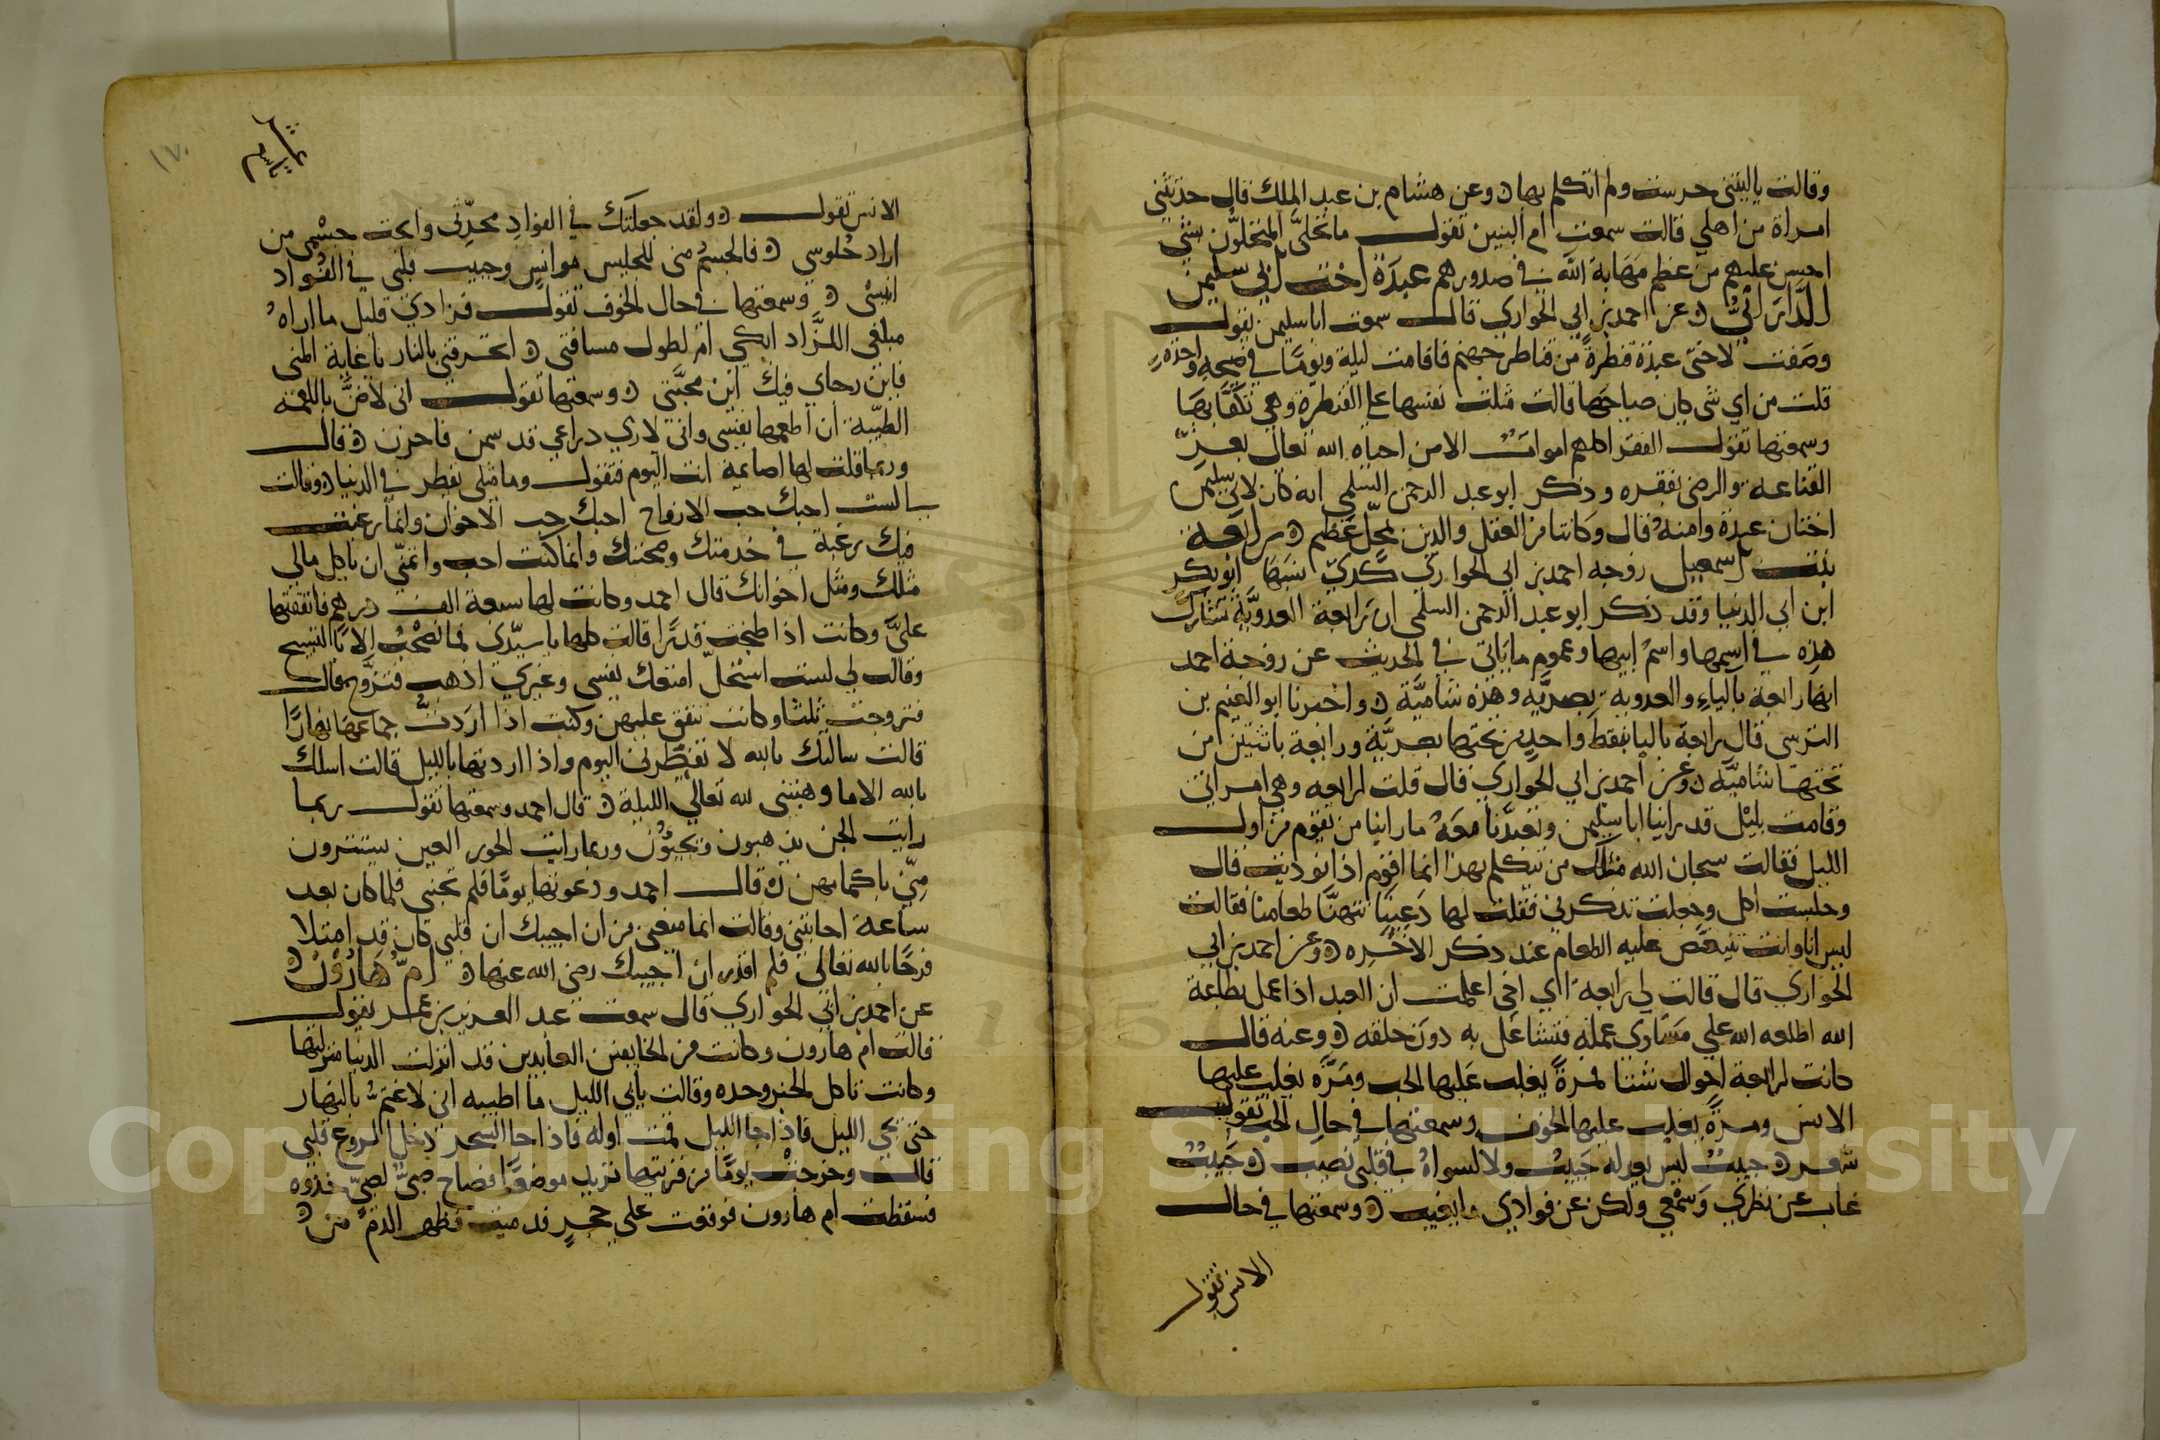 وقالت ياليتني خرست ولم اتكلم بها ه وعن هشام بن عبد الملك قال حدثتني
امراة من اهلي قالت سمعت ام البنين تقول ما تحلى المتحلون بشي
احسن عليهم من عظم مهابة الله في صدورهم عبدة اخت ابي سليمن
الداراني ه عن احمد بن ابي الحواري قال سمعت ابا سليمن يقول
وصفت لاختي عبدة قنطرة من قناطر جهنم فاقامت ليلة ويوما في صيحة واحدة
قلت من اي شي كان صياحها قالت مثلت نفسها على القنطرة وهي تكفا بها
وسمعتها تقول الفقرا كلهم اموات الا من احياه الله تعالى بعز
القناعة والرضى بفقره وذكر ابو عبد الرحمن السلمي انه كان لابي سليمن
اختان عبدة وامنة قال وكانتا من العقل والدين بمحل عظيم ه رابعة
بنت اسمعيل زوجة احمد بن ابي الحواري كذي نسبها ابو بكر
ابن ابي الدنيا وقد ذكر ابو عبد الرحمن السلمي ان رابعة العدوية تشارك
هذه في اسمها واسم ابيها وعموم ما ياتي في الحديث عن زوجة احمد
انها رابعة بالياء والعدوية بصرية وهذه شامية ه واخبرنا ابو الغنيم بن
النرسي قال رابعة باليا بنقط واحد من تحتها بصرية ورايعة باثنتين من
تحتها شامية ه وعن احمد بن ابي الحواري قال قلت لرابعة وهي امراتي
وقامت بليل قد راينا ابا سليمن وتعبدنا معه ما راينا من يقوم من اول
الليل فقالت سبحان الله مثلك من يتكلم بهذا انما اقوم اذا نوديت قال
وجلست اكل وجعلت تذكرني فقلت لها دعينا نتهنا طعامنا فقالت
ليس انا وانت ممن ينغص عليه الطعام عند ذكر الاخره ه وعن احمد بن ابي
الحواري قال قالت لي رابعة اي اخي اعلمت ان العبد اذا عمل بطاعة
الله اطلعه الله على مساوي عمله فتشاغل به دون خلقه ه وعنه قال
كانت لرابعة احوال شتا فمرة يغلب عليها الحب ومرة يغلب عليها
الانس ومرة يغلب عليها الخوف وسمعتها في حال الحب تقول
شعر ه حبيب ليس يعدله حبيب ولا لسواه في قلبي نصيب ه حبيب
غاب عن نظري وسمعي ولكن عن فوادي ما يغيب ه وسمعتها في حال
الانس تقول
١٧٠
الانس تقول ه ولقد جعلتك في الفواد محدثي وابحت جسمي من
اراد جلوسي ه فالجسم مني للجليس موانس وحبيب قلبي في الفواد
انيسي ه وسمعتها في حال الخوف تقول فزادي قليل ما اراه
مبلغي اللزاد ابكي ام لطول مسافتي ه اتحرقني بالنار يا غاية المنى
فاين رجاي فيك اين محبتي ه وسمعتها تقول اني لاضن باللقمة
الطيبة ان اطعمها نفسي واني لارى ذراعي قد سمن فاحزن ه قال
وربما قلت لها اصايمة انت اليوم فتقول وما مثلي يفطر في الدنيا وقالت
لست احبك حب الازواج احبك حب الاخوان وانما رغبت
فيك رغبة في خدمتك وصحبتك وانما كنت احب واتمنى ان ياكل مالي
مثلك ومثل اخوانك قال احمد وكانت لها سبعة الف درهم فانفقتها
علي وكانت اذا طبخت قدرا قالت كلها يا سيدي فما نضجت الا بالتسبيح
وقالت لي لست استحل امنعك نفسي وغيري اذهب فتزوج قال
فتزوجت ثلثا وكانت تنفق عليهن وكنت اذا اردت جماعها نهارا
قالت سالتك بالله لا تفطرني اليوم واذا اردتها بالليل قالت اسلك
بالله الا ما وهبتني لله تعالى الليلة ه قال احمد وسمعتها تقول ربما
رايت الجن يذهبون ويجيؤن وربما رايت الحور العين يستترون
مني باكمامهن ه قال احمد ودعوتها يوما فلم تجبني فلما كان بعد
ساعة اجابتني وقالت انما منعني من ان اجيبك ان قلبي كان قد امتلا
فرحا بالله تعالى فلم اقدر ان اجيبك رضي الله عنها ه ام هارون ه
عن احمد بن ابي الحواري قال سمعت عبد العزيز بن عمر يقول
قالت ام هارون وكانت من الخايفين العابدين قد انزلت الدنيا منزلتها
وكانت تاكل الخبز وحده وقالت بابي الليل ما اطيبه اني لاغتم بالنهار
حتى يجي الليل فاذا جا الليل قمت اوله فاذا جا السحر دخل الروع قلبي
قال وخرجت يوما من قريتها تريد موضعا فصاح صبي لصبي خذوه
فسقطت ام هارون فوقعت على حجر فدميت فظهر الدم من ه